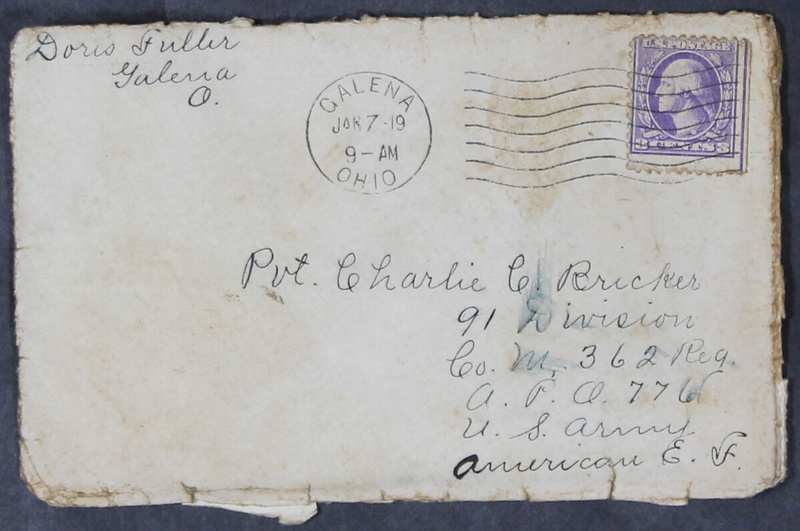 Doris Fuller
Galena
O.
GALENA
JAN 7-19
9-AM
OHIO
U.S. POSTAGE
3 CENTS 3
Pvt. Charlie C. Bricker
91 Division
Co. M, 362 Reg.
A. P. O. 776
U. S. Army
American E. F.